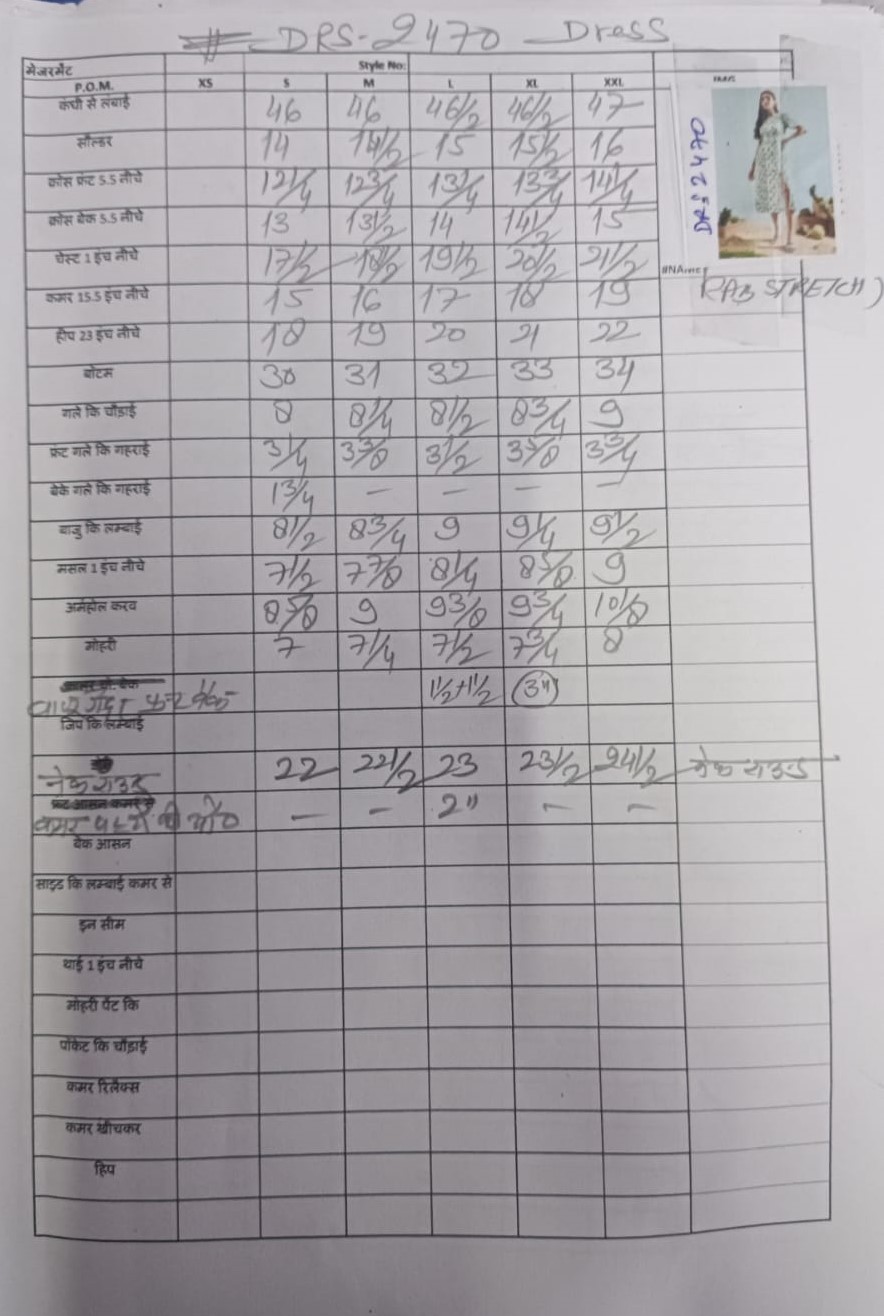 # DRS-2470 Dress
मेजरमेंट Style No:
P.O.M. XS S M L XL XXL
कंधी से लंबाई 46 46 46 1/2 46 1/2 47
सोल्डर 14 14 1/2 15 15 1/2 16
DRS 2470
क्रोस फ्रंट 5.5 नीचे 12 1/4 12 3/4 13 1/4 13 3/4 14 1/4
क्रोस बेक 5.5 नीचे 13 13 1/2 14 14 1/2 15
चेस्ट 1 इंच नीचे 17 1/2 18 1/2 19 1/2 20 1/2 21 1/2
कमर 15.5 इंच नीचे 15 16 17 18 19 STRETCH)
हीप 23 इंच नीचे 18 19 20 21 22
बोटम 30 31 32 33 34
गले कि चौड़ाई 8 8 1/4 8 1/2 8 3/4 9
फ्रंट गले कि गहराई 3 1/4 3 3/8 3 1/2 3 5/8 3 3/4
बेके गले कि गहराई 1 3/4 — — — —
बाजु कि लम्बाई 8 1/2 8 3/4 9 9 1/4 9 1/2
मसल 1 इंच नीचे 7 1/2 7 7/8 8 1/4 8 5/8 9
अर्महोल करव 8 5/8 9 9 3/8 9 3/4 10 1/8
मोहरी 7 7 1/4 7 1/2 7 3/4 8
1 1/2 + 1 1/2 (3")
जिप कि लम्बाई
नेक राउंड 22 22 1/2 23 23 1/2 24 1/2 नेक राउंड
कमर — — 2" — —
बेक आसन
साइड कि लम्बाई कमर से
इन सीम
थाई 1 इंच नीचे
मोहरी पेंट कि
पॉकेट कि चौड़ाई
कमर रिलैक्स
कमर खीचकर
हिप